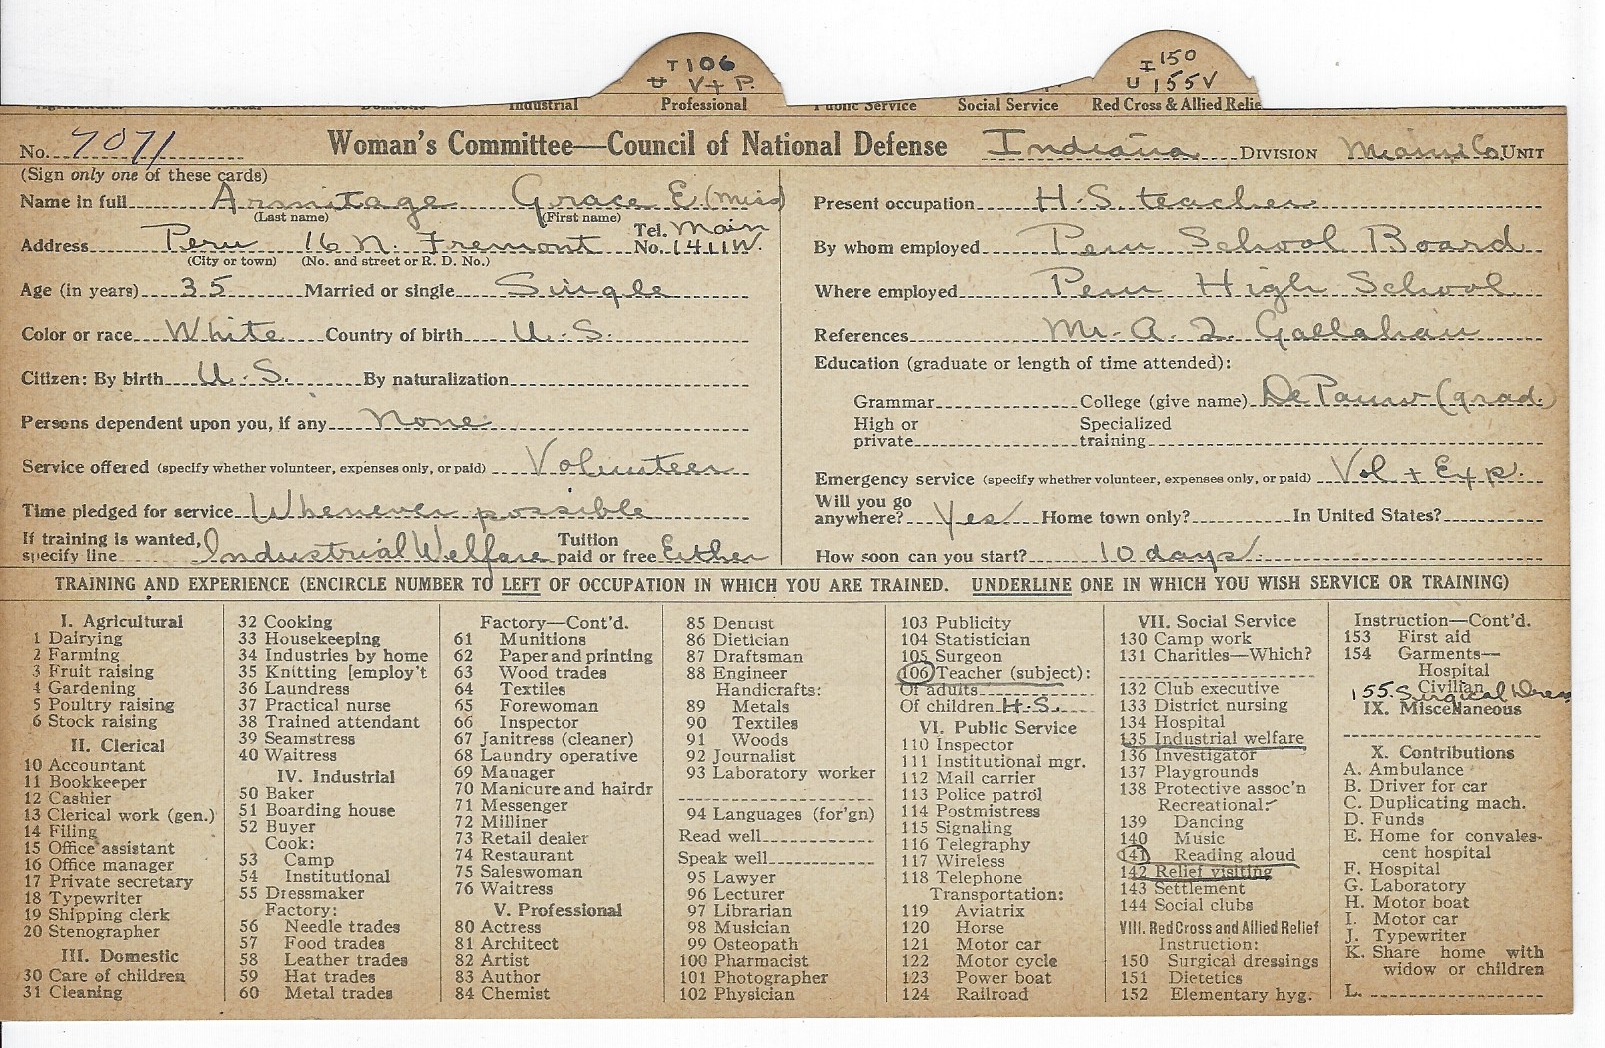 T 106
U V + P.
I 150
U 155 V
Industrial Professional Public Service Social Service Red Cross & Allied Relie
No. 7071 Woman's Committee—Council of National Defense Indiana DIVISION Miami Co. UNIT
(Sign only one of these cards)
Name in full Armitage Grace E. (Miss)
(Last name) (First name)
Address Peru 16 N. Fremont Tel. No. Main 1411W.
(City or town) (No. and street or R. D. No.)
Age (in years) 35 Married or single Single
Color or race White Country of birth U.S.
Citizen: By birth U.S. By naturalization
Persons dependent upon you, if any None
Service offered (specify whether volunteer, expenses only, or paid) Volunteer
Time pledged for service Whenever possible
If training is wanted, specify line Industrial Welfare Tuition paid or free Either
Present occupation H.S. teacher
By whom employed Peru School Board
Where employed Peru High School
References Mr. A. L. Gallahan
Education (graduate or length of time attended):
Grammar College (give name) De Pauw (grad.)
High or private Specialized training
Emergency service (specify whether volunteer, expenses only, or paid) Vol + Exp.
Will you go anywhere? Yes Home town only? In United States?
How soon can you start? 10 days
TRAINING AND EXPERIENCE (ENCIRCLE NUMBER TO LEFT OF OCCUPATION IN WHICH YOU ARE TRAINED. UNDERLINE ONE IN WHICH YOU WISH SERVICE OR TRAINING)
I. Agricultural
1 Dairying
2 Farming
3 Fruit raising
4 Gardening
5 Poultry raising
6 Stock raising
II. Clerical
10 Accountant
11 Bookkeeper
12 Cashier
13 Clerical work (gen.)
14 Filing
15 Office assistant
16 Office manager
17 Private secretary
18 Typewriter
19 Shipping clerk
20 Stenographer
III. Domestic
30 Care of children
31 Cleaning
32 Cooking
33 Housekeeping
34 Industries by home
35 Knitting [employ't
36 Laundress
37 Practical nurse
38 Trained attendant
39 Seamstress
40 Waitress
IV. Industrial
50 Baker
51 Boarding house
52 Buyer
Cook:
53 Camp
54 Institutional
55 Dressmaker
Factory:
56 Needle trades
57 Food trades
58 Leather trades
59 Hat trades
60 Metal trades
Factory—Cont'd.
61 Munitions
62 Paper and printing
63 Wood trades
64 Textiles
65 Forewoman
66 Inspector
67 Janitress (cleaner)
68 Laundry operative
69 Manager
70 Manicure and hairdr
71 Messenger
72 Milliner
73 Retail dealer
74 Restaurant
75 Saleswoman
76 Waitress
V. Professional
80 Actress
81 Architect
82 Artist
83 Author
84 Chemist
85 Dentist
86 Dietician
87 Draftsman
88 Engineer
Handicrafts:
89 Metals
90 Textiles
91 Woods
92 Journalist
93 Laboratory worker
94 Languages (for'gn)
Read well
Speak well
95 Lawyer
96 Lecturer
97 Librarian
98 Musician
99 Osteopath
100 Pharmacist
101 Photographer
102 Physician
103 Publicity
104 Statistician
105 Surgeon
106 Teacher (subject):
Of adults
Of children H.S.
VI. Public Service
110 Inspector
111 Institutional mgr.
112 Mail carrier
113 Police patrol
114 Postmistress
115 Signaling
116 Telegraphy
117 Wireless
118 Telephone
Transportation:
119 Aviatrix
120 Horse
121 Motor car
122 Motor cycle
123 Power boat
124 Railroad
VII. Social Service
130 Camp work
131 Charities—Which?
132 Club executive
133 District nursing
134 Hospital
135 Industrial welfare
136 Investigator
137 Playgrounds
138 Protective assoc'n
Recreational:
139 Dancing
140 Music
141 Reading aloud
142 Relief visiting
143 Settlement
144 Social clubs
VIII. Red Cross and Allied Relief
Instruction:
150 Surgical dressings
151 Dietetics
152 Elementary hyg.
Instruction—Cont'd.
153 First aid
154 Garments—
Hospital
Civilian
155. Surgical Dress
IX. Miscellaneous
X. Contributions
A. Ambulance
B. Driver for car
C. Duplicating mach.
D. Funds
E. Home for convales-
cent hospital
F. Hospital
G. Laboratory
H. Motor boat
I. Motor car
J. Typewriter
K. Share home with
widow or children
L.